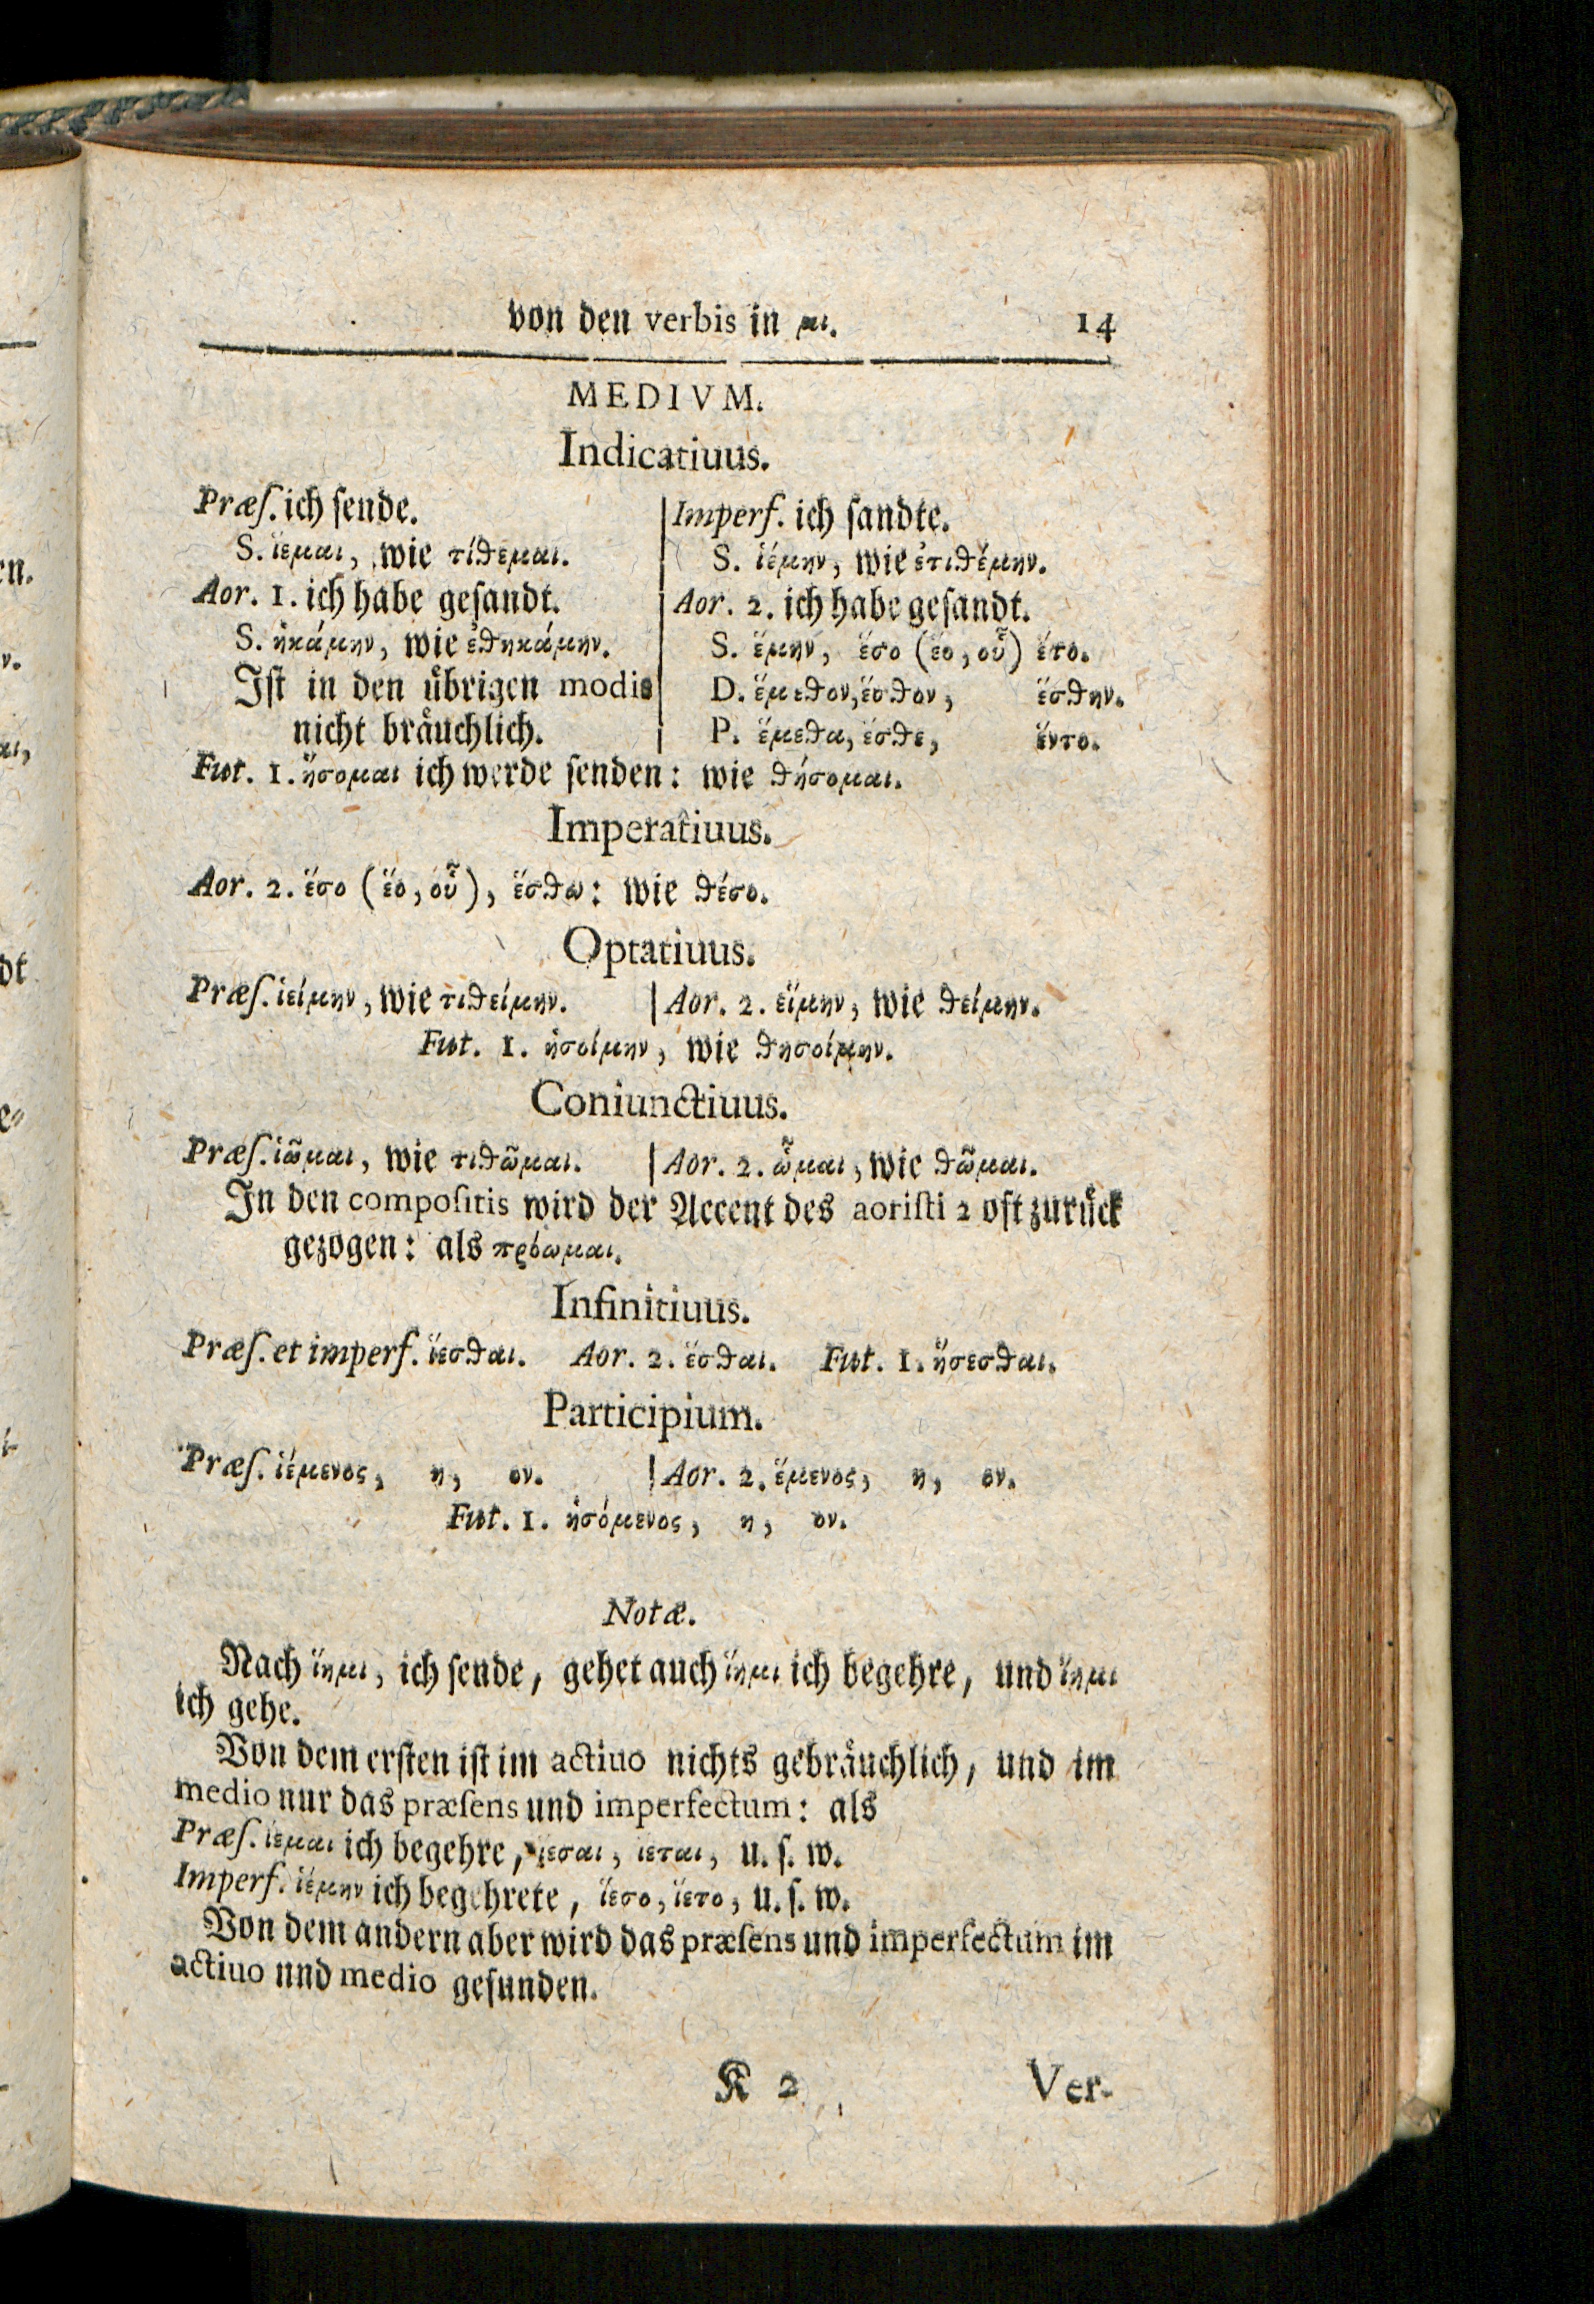 von den verbis in μι. 14
MEDIVM.
Indicatiuus.
Præſ. ich ſende.
S. ἵεμαι, wie τίθεμαι.
Aor. 1. ich habe geſandt.
S. ἡκάμην, wie ἐθηκάμην.
Iſt in den uͤbrigen modis
nicht braͤuchlich.
Imperf. ich ſandte.
S. ἱέμην, wie ἐτιθέμην.
Aor. 2. ich habe geſandt.
S. ἕμην, ἕσο (ἕο, οὗ) ἕτο.
D. ἕμεθον, ἕσθον, ἕσθην.
P. ἕμεθα, ἕσθε, ἕντο.
Fut. 1. ἥσομαι ich werde ſenden: wie θήσομαι.
Imperatiuus.
Aor. 2. ἕσο (ἕο, οὗ), ἕσθω: wie θέσο.
Optatiuus.
Præſ. ἱείμην, wie τιθείμην. | Aor. 2. εἵμην, wie θείμην.
Fut. 1. ἡσοίμην, wie θησοίμην.
Coniunctiuus.
Præſ. ἱῶμαι, wie τιθῶμαι. | Aor. 2. ὧμαι, wie θῶμαι.
In den compoſitis wird der Accent des aoriſti 2 oft zuruͤck
gezogen: als πρόωμαι.
Infinitiuus.
Præſ. et imperf. ἵεσθαι. Aor. 2. ἕσθαι. Fut. 1. ἥσεσθαι.
Participium.
Præſ. ἱέμενος, η, ον. | Aor. 2. ἕμενος, η, ον.
Fut. 1. ἡσόμενος, η, ον.
Notæ.
Nach ἵημι, ich ſende, gehet auch ἵημι ich begehre, und ἵημι
ich gehe.
Von dem erſten iſt im actiuo nichts gebraͤuchlich, und im
medio nur das præſens und imperfectum: als
Præſ. ἵεμαι ich begehre, ἵεσαι, ἵεται, u. ſ. w.
Imperf. ἱέμην ich begehrete, ἵεσο, ἵετο, u. ſ. w.
Von dem andern aber wird das præſens und imperfectum im
actiuo und medio gefunden.
K 2 Ver-